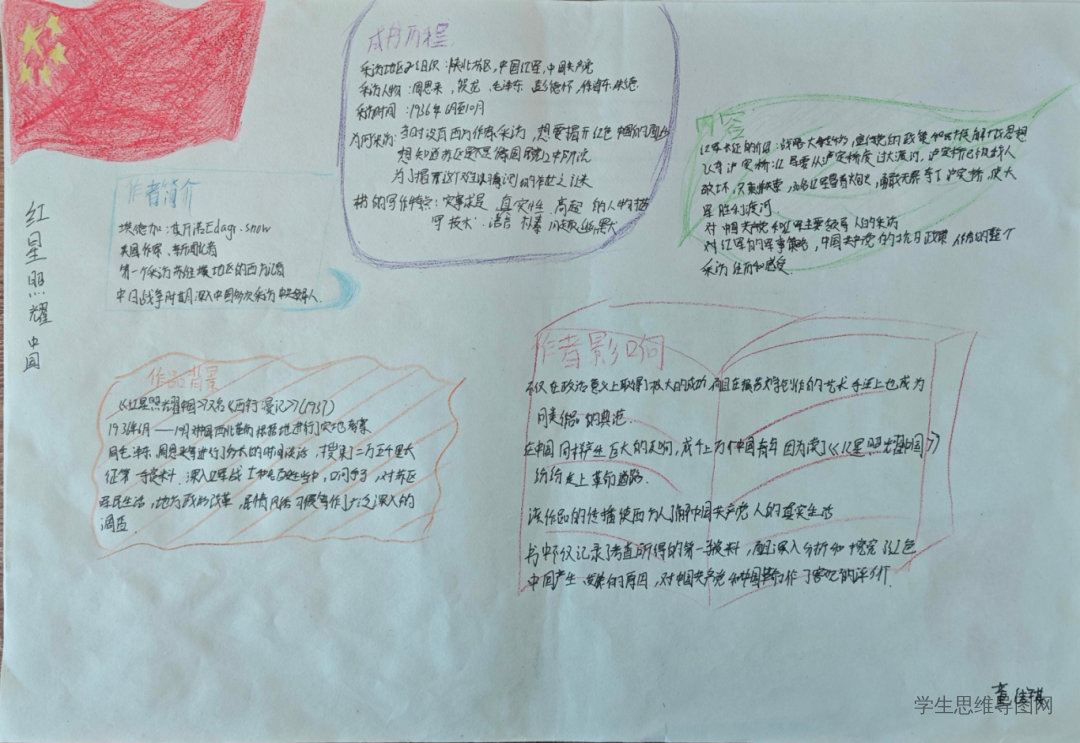 红星照耀中国
作者简介
埃德加·斯诺Edagi.snow
美国作家、新闻记者
第一个采访苏维埃地区的西方记者
中日战争时期深入中国多次采访
成书历程
采访地区及组织：陕北苏区,中国红军,中国共产党
采访人物：周恩来,贺龙,毛泽东,彭德怀,徐海东,朱德
采访时间：1936年6月至10月
为何采访：当时没有西方作家采访,想要揭开红色中国的
想知道苏区是不是
为了揭常这个
书的写作特点：实事求是 真实性 高超的人物描
写技术 语言
内容
红军长征的介绍：战略大转移
飞夺泸定桥：红军要从泸定桥度过大渡河,泸定桥已被敌人
破坏,只剩铁索,勇敢无畏夺了泸定桥,使大
军胜利渡河
对中国共产党和红军主要领导人的采访
对红军的军事策略,中国共产党的抗日政策 作者的整个
采访经历和感受
作品背景
《红星照耀中国》又名《西行漫记》(1937)
1936年6月——10月 对中国西北革命根据地进行了实地考察
同毛泽东,周恩来等进行了多次的长时间谈话,搜集了二万五千里长
征第一手资料.深入红军战士和老百姓当中,口问手写,对苏区
军民生活,地方政治改革,民情风俗习惯等作了广泛深入的
调查
作者影响
不仅在政治意义上取得了极大的成功,而且在报告文学创作的艺术手法上也成为
同类作品的典范.
在中国同样产生巨大的反响,成千上万个中国青年因为读了《红星照耀中国》
纷纷走上革命道路.
该作品的传播使西方人了解中国共产党人的真实生活
书中不仅记录了考查所得的第一手资料,而且深入分析和探究了红色
中国产生、发展的原因,对中国共产党和中国革命作了客观的评价.
学生思维导图网